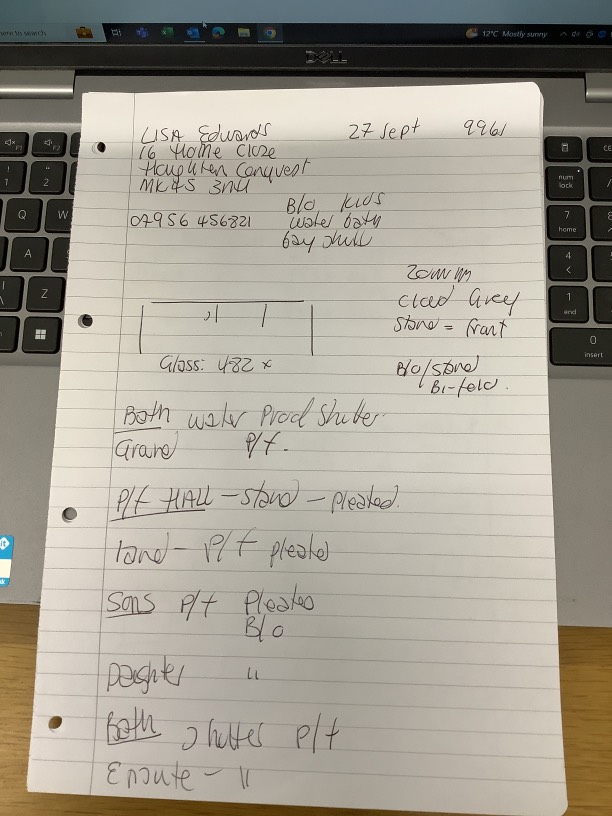 LISA Edwards 27 Sept 9961
16 Home Close
Houghton Conquest
MK45 3NU
B/O Kids
07956 456821 water bath
bay shutt
20mm
Cloud Grey
Stand = front
Glass: 482 x
B/O/stand
Bi-fold.
Bath water Proof Shutter
P/f.
P/f HALL - stand - pleated.
land - P/f pleated
Sons P/f Pleated
B/O
Daughter "
Bath Shutter P/f
Ensuite - "
DELL
12°C Mostly sunny
here to search